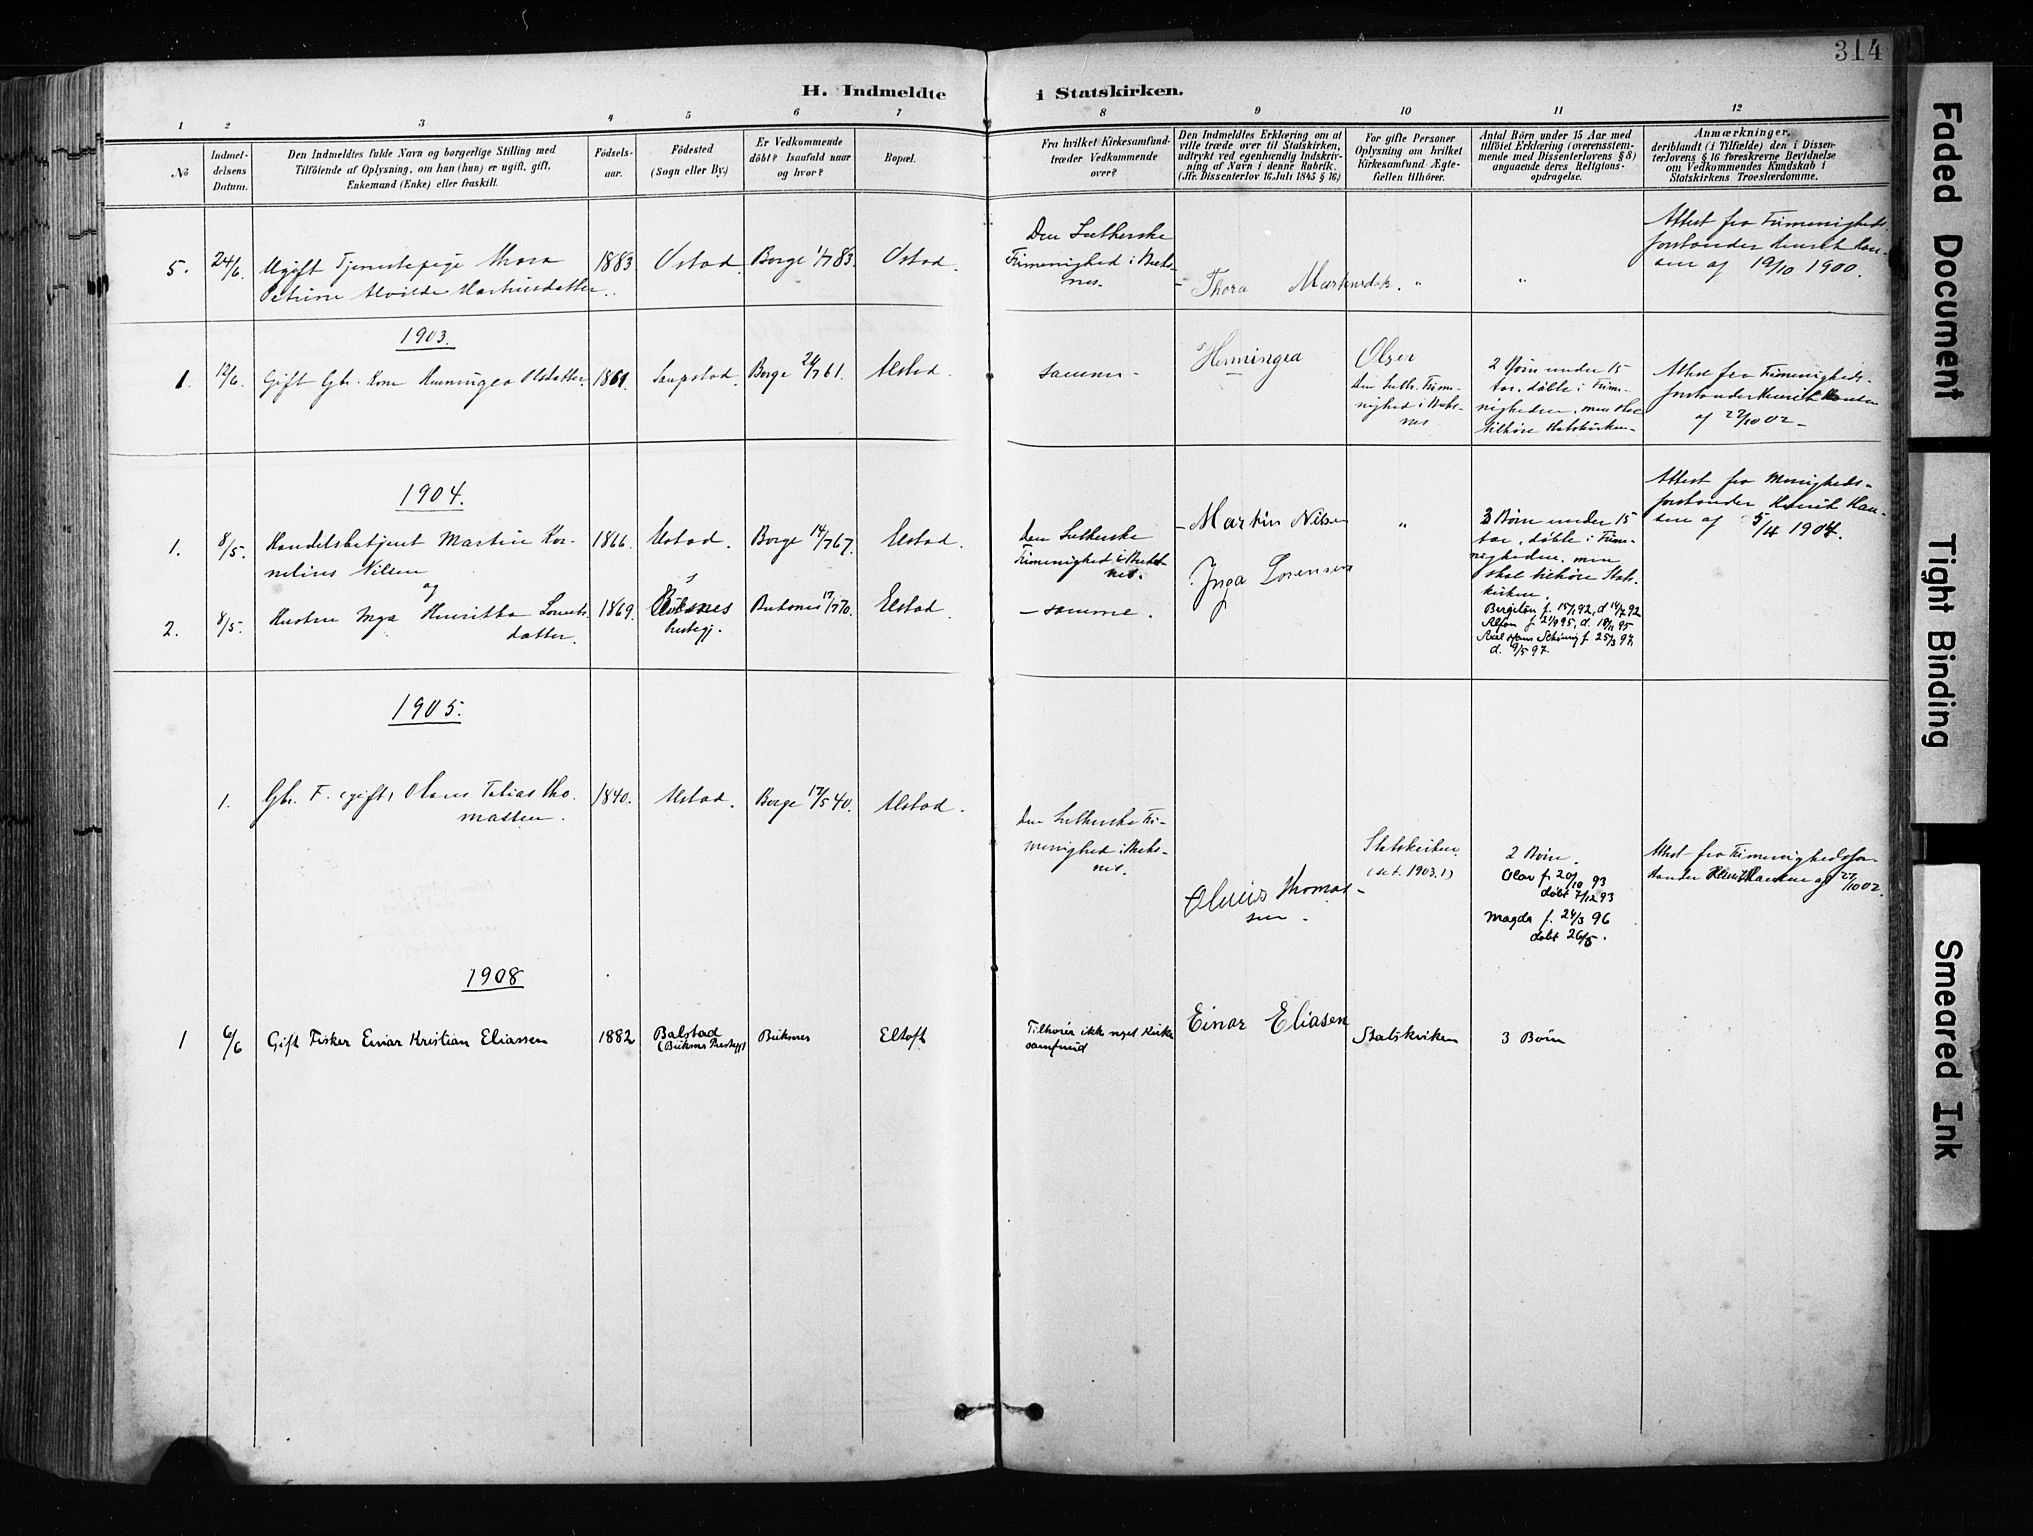 314
H. Indmeldte i Statskirken.
1 2 3 4 5 6 7 8 9 10 11 12
No
Indmel-
delsens
Datum.
Den Indmeldtes fulde Navn og borgerlige Stilling med
Tilföiende af Oplysning, om han (hun) er ugift, gift,
Enkemand (Enke) eller fraskilt.
Födsels-
aar.
Födested
(Sogn eller By.)
Er Vedkommende
döbt? Isaafald naar
og hvor?
Bopæl.
Fra hvilket Kirkesamfund
træder Vedkommende
over?
Den Indmeldtes Erklæring om at
ville træde over til Statskirken,
udtrykt ved egenhændig Indskriv-
ning af Navn i denne Rubrik.
(Jfr. Dissenterlov 16. Juli 1845 § 16)
For gifte Personer
Oplysning om hvilket
Kirkesamfund Ægte-
fællen tilhörer.
Antal Börn under 15 Aar med
tilföiet Erklæring (overensstem-
mende med Dissenterlovens § 8)
angaaende deres Religions-
opdragelse.
Anmærkninger,
deriblandt (i Tilfælde) den i Dissen-
terlovens § 16 foreskrevne Bevidnelse
om Vedkommendes Kundskab i
Statskirkens Troeslærdomme.
5. 24/6. Ugift Tjenestepige Thora
Petrine Alvilde Martinsdatter.
1883 Ostad. Borge 1/7 83. Ostad.
Den Lutherske
Frimenighed i Buks-
nes.
Thora Martinsdtr. " "
Attest fra Frimenigheds
forstander Henrik Han-
sen af 19/10 1900.
1903.
1. 12/6. Gift Gbr. Kone Henningea Olsdatter. 1861. Saupstad. Borge 24/7 61. Alstad.
samme
Henningea Olsen
Den Luth. Frime-
nighed i Buks-
nes
2 Børn under 15
Aar, døbte i Frime-
nigheden, men skal
tilhøre Statskirken.
Attest fra Frimenigheds-
forstander Henrik Hansen
af 22/10 02
1904.
1. 8/5. Handelsbetjent Martin Kor-
nelius Nilsen
og
1866. Alstad. Borge 14/7 67. Alstad.
Den Lutherske
Frimenighed i Buks-
nes.
Martin Nilsen "
3 Børn under 15
Aar, døbte i Frime-
nigheden, men
skal tilhøre Stats-
kirken.
Attest fra Menigheds-
forstander Henrik Han-
sen af 5/14 1904.
2. 8/5. Hustru Inga Henritha Lorents-
datter.
1869. Buksnes
Prestegj.
Buksnes 17/7 70. Elstad.
samme.
Inga Lorensen
Bergiton f. 15/1 92, d. 14/2 92
Alfon f. 21/9 95, d. 18/11 95
Axel Hans Schønig f. 25/3 97,
d. 9/5 97.
1905.
1. Gbr. F. (gift) Olaus Tobias Tho-
massen.
1840. Alstad. Borge 17/5 40. Alstad.
Den Lutherske Fri-
menighed i Buks-
nes.
Olaus Thomas-
sen
Statskirken
(se f. 1903.1)
2 Børn.
Olav f. 20/10 93
døbt 7/12 93
Magda f. 24/3 96
døbt 26/5.
Attest fra Frimenighedsfor-
stander Henrik Hansen af 22/10 02.
1908
1 6/6 Gift Fisker Einar Kristian Eliassen 1882 Balstad
(Buksnes Prestegj)
Buksnes Eltoft
Tilhører ikke noget Kirke-
samfund
Einar Eliasen Statskirken 3 Børn
Faded Document
Tight Binding
Smeared Ink